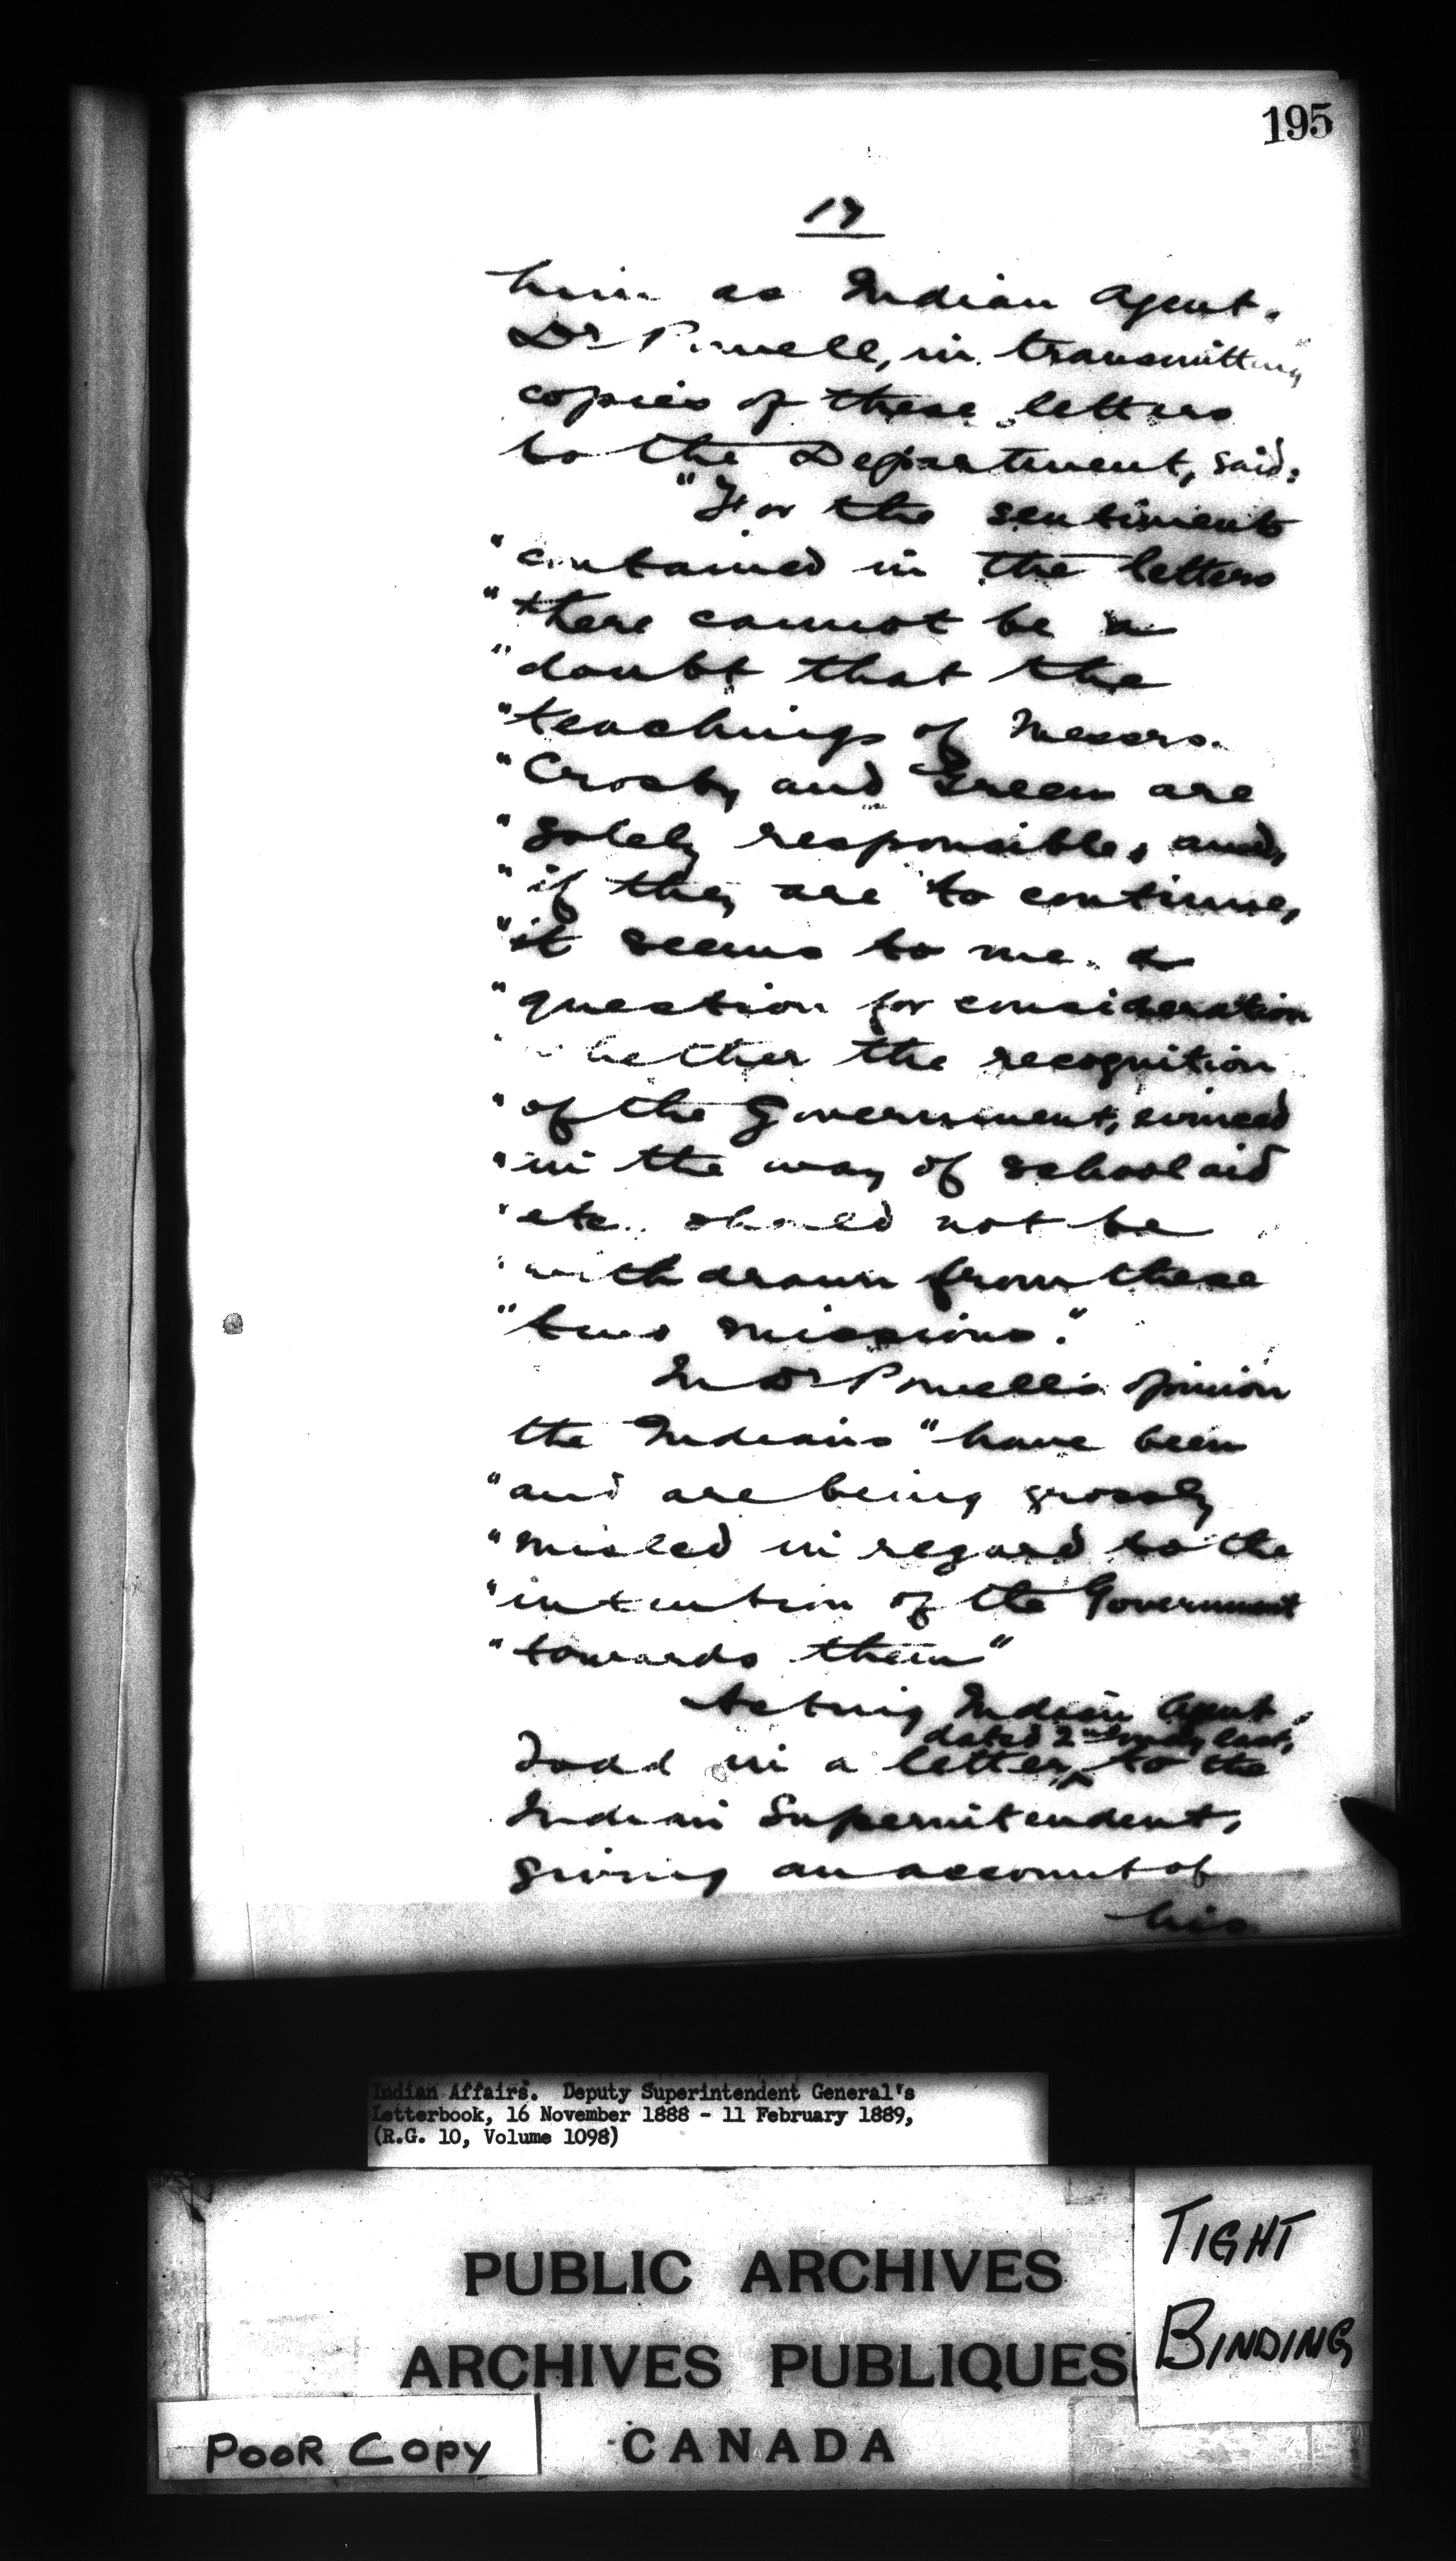 195
17
him as Indian Agent.
Dr Powell, in transmitting
copies of these letters
to the Department, said:
"For the sentiments
"contained in the letters
"there cannot be a
"doubt that the
"teachings of Messrs.
"Crosby and Green are
"solely responsible, and,
"if they are to continue,
"it seems to me a
"question for consideration
"whether the recognition
"of the Government, evinced
"in the way of school aid
"etc. should not be
"withdrawn from these
"two missions."
In Dr Powell's opinion
the Indians "have been
"and are being grossly
"misled in regard to the
"intention of the Government
"towards them"
Acting Indian Agent
dated 2nd May last,
Todd in a letter, to the
Indian Superintendent,
giving an account of
his
Indian Affairs. Deputy Superintendent General's
Letterbook, 16 November 1888 - 11 February 1889,
(R.G. 10, Volume 1098)
PUBLIC ARCHIVES
ARCHIVES PUBLIQUES
CANADA
TIGHT
BINDING
POOR COPY